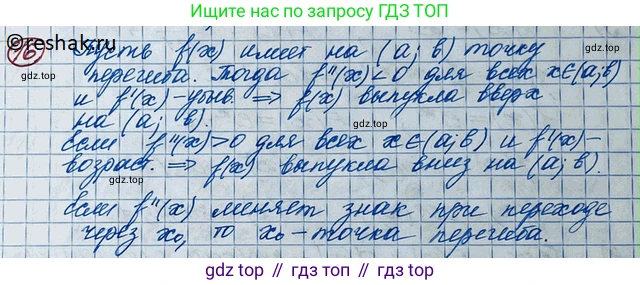 Ищите нас по запросу ГДЗ ТОП
©reshak.ru
16
Пусть f(x) имеет на (a; b) точку
gdz.top
перегиба. Тогда f''(x)<0 для всех x∈(a;b)
и f'(x)-убыв. ⇒ f(x) выпукла вверх
на (a; b).
Если f''(x)>0 для всех x∈(a;b) и f'(x)-
возраст. ⇒ f(x) выпукла вниз на (a; b).
Если f''(x) меняет знак при переходе
через x₀, то x₀-точка перегиба.
gdz.top // гдз топ // гдз.топ